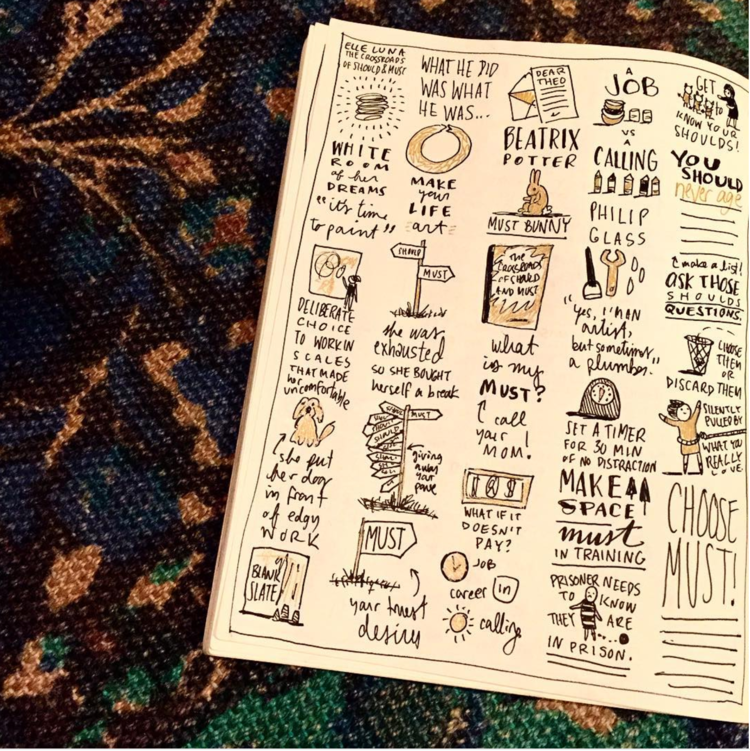 ELLE LUNA
THE CROSSROADS
OF SHOULD & MUST
WHITE
ROOM
of her
DREAMS
"it's time
to paint"
DELIBERATE
CHOICE
TO WORK IN
SCALES
THAT MADE
her
uncomfortable
she put
her dog
in front
of edgy
WORK
BLANK
SLATE
WHAT HE DID
WAS WHAT
HE WAS...
MAKE
your
LIFE
art
SHOULD
MUST
she was
exhausted
SO SHE BOUGHT
herself a break
MUST
SHOULD
giving
away
your
MUST
your truest
desires
DEAR
THEO
BEATRIX
POTTER
MUST BUNNY
THE
CROSSROADS
OF SHOULD
AND MUST
what
is my
MUST?
call
your
MOM!
WHAT IF IT
DOESN'T
PAY?
JOB
career in
calling
A
JOB
VS
A
CALLING
PHILIP
GLASS
"Yes, I'M AN
artist,
but sometimes
a plumber."
SET A TIMER
FOR 30 MIN
OF NO DISTRACTION
MAKE
SPACE
must
IN TRAINING
PRISONER NEEDS
TO KNOW
THEY ARE
IN PRISON.
GET
to
KNOW YOUR
SHOULDS!
YOU
SHOULD
never age
make a list!
ASK THOSE
SHOULDS
QUESTIONS.
CHOOSE
THEM
OR
DISCARD THEM
SILENTLY
PULLED BY
WHAT YOU
REALLY
LOVE
CHOOSE
MUST!